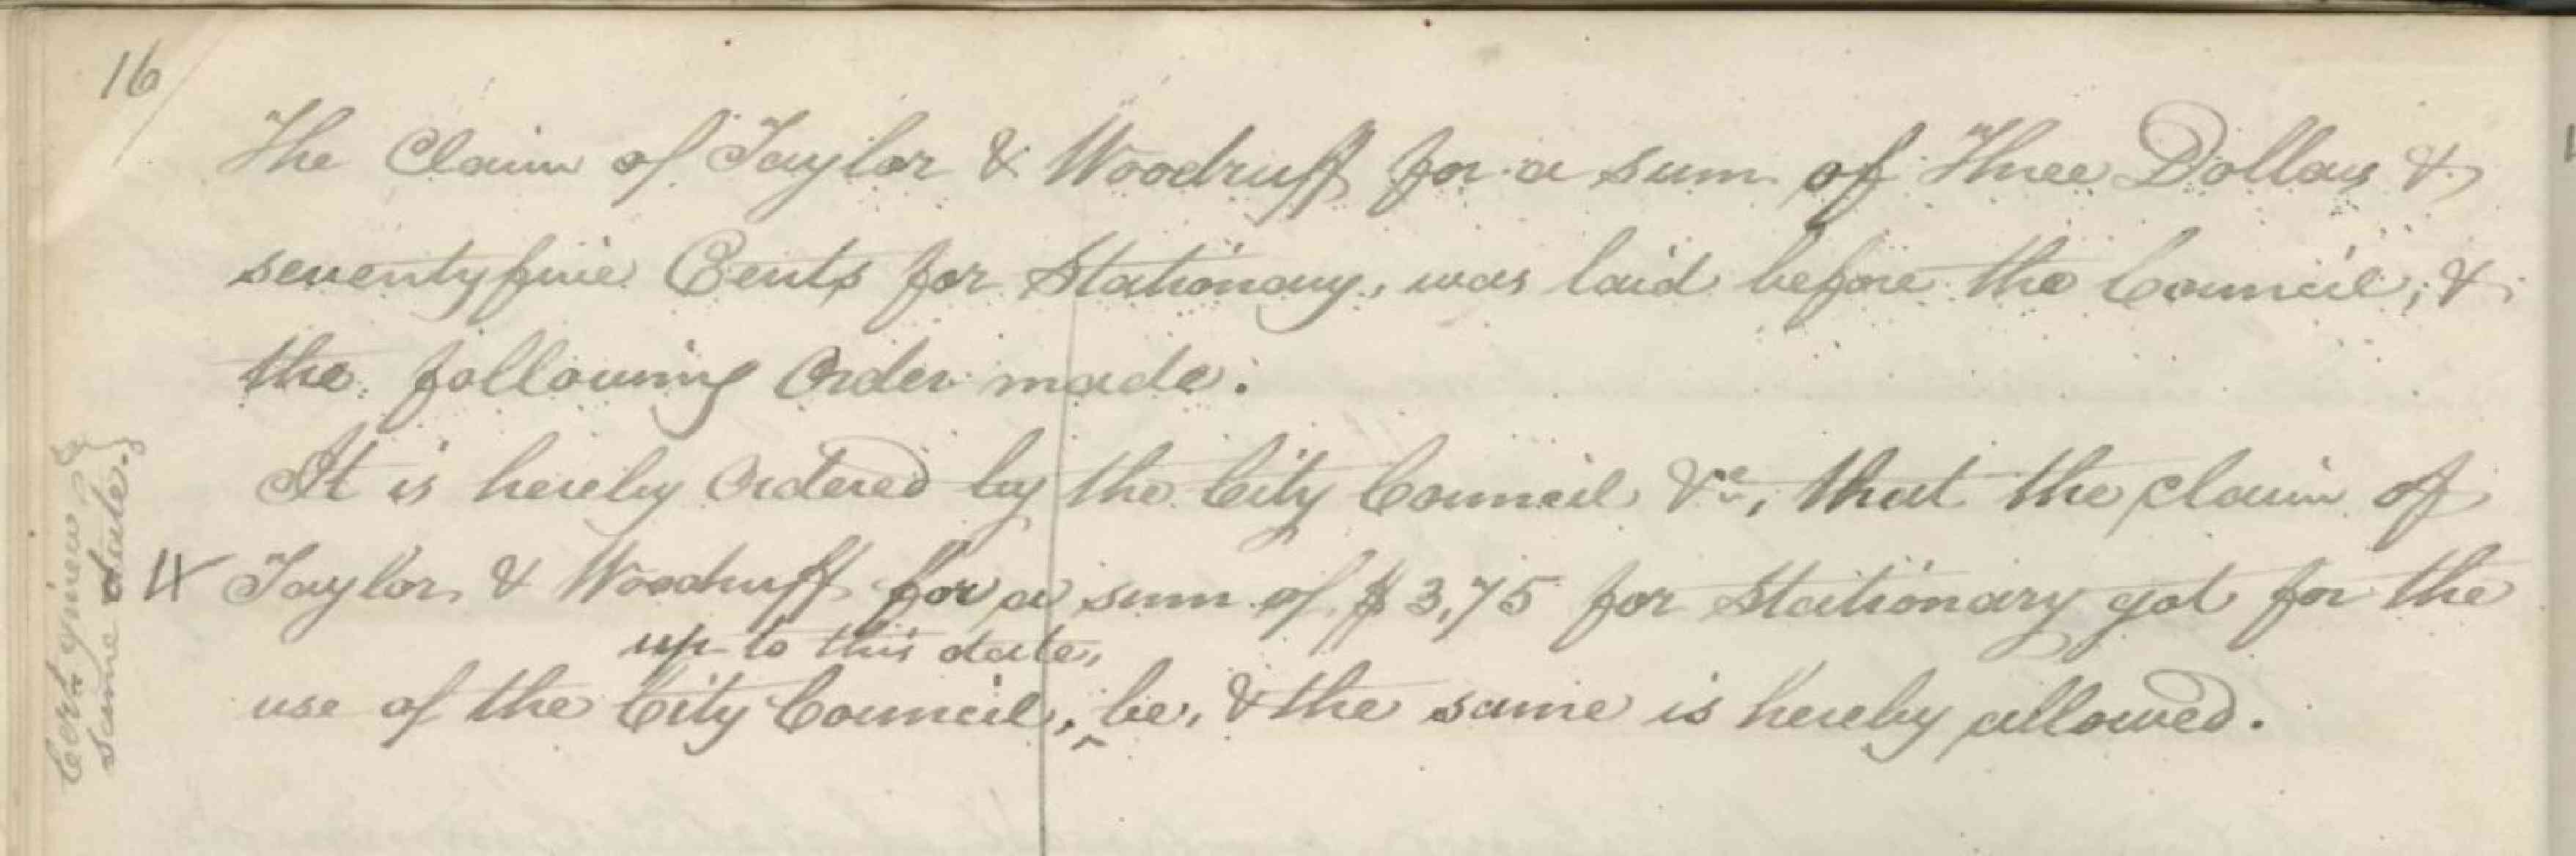 16
The Claim of Taylor & Woodruff for a sum of Three Dollars &
seventyfive Cents for Stationary, was laid before the Council, &
the following Order made.
It is hereby Ordered by the City Council &c, that the claim of
Taylor & Woodruff for a sum of $3,75 for Stationary got for the
up to this date,
use of the City Council, ‸ be, & the same is hereby allowed.
Cert. given
same date.